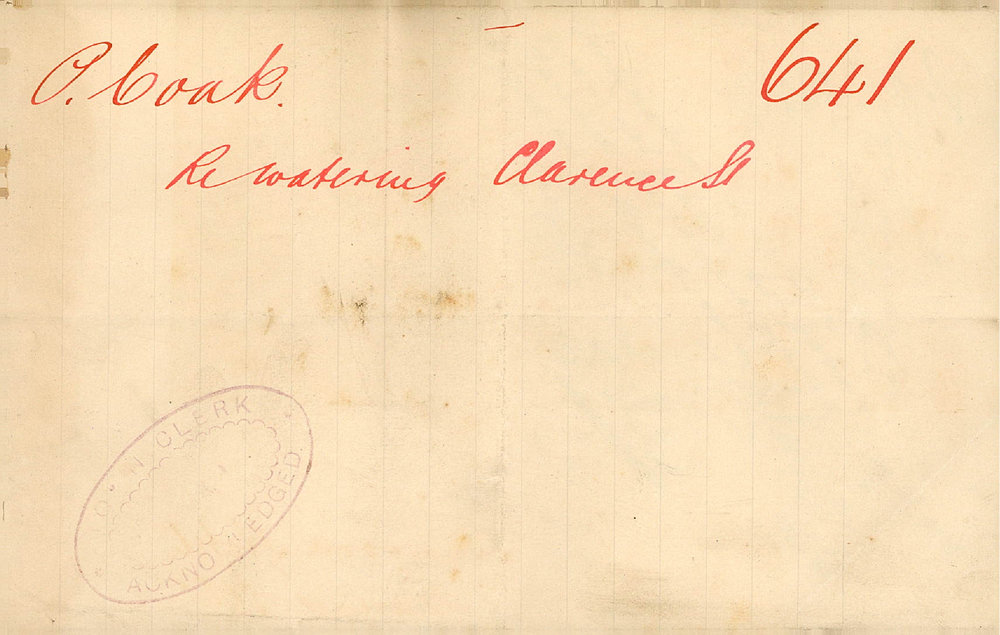 P. Coak. 641
Re watering Clarence St
CLERK
ACKNOWLEDGED.